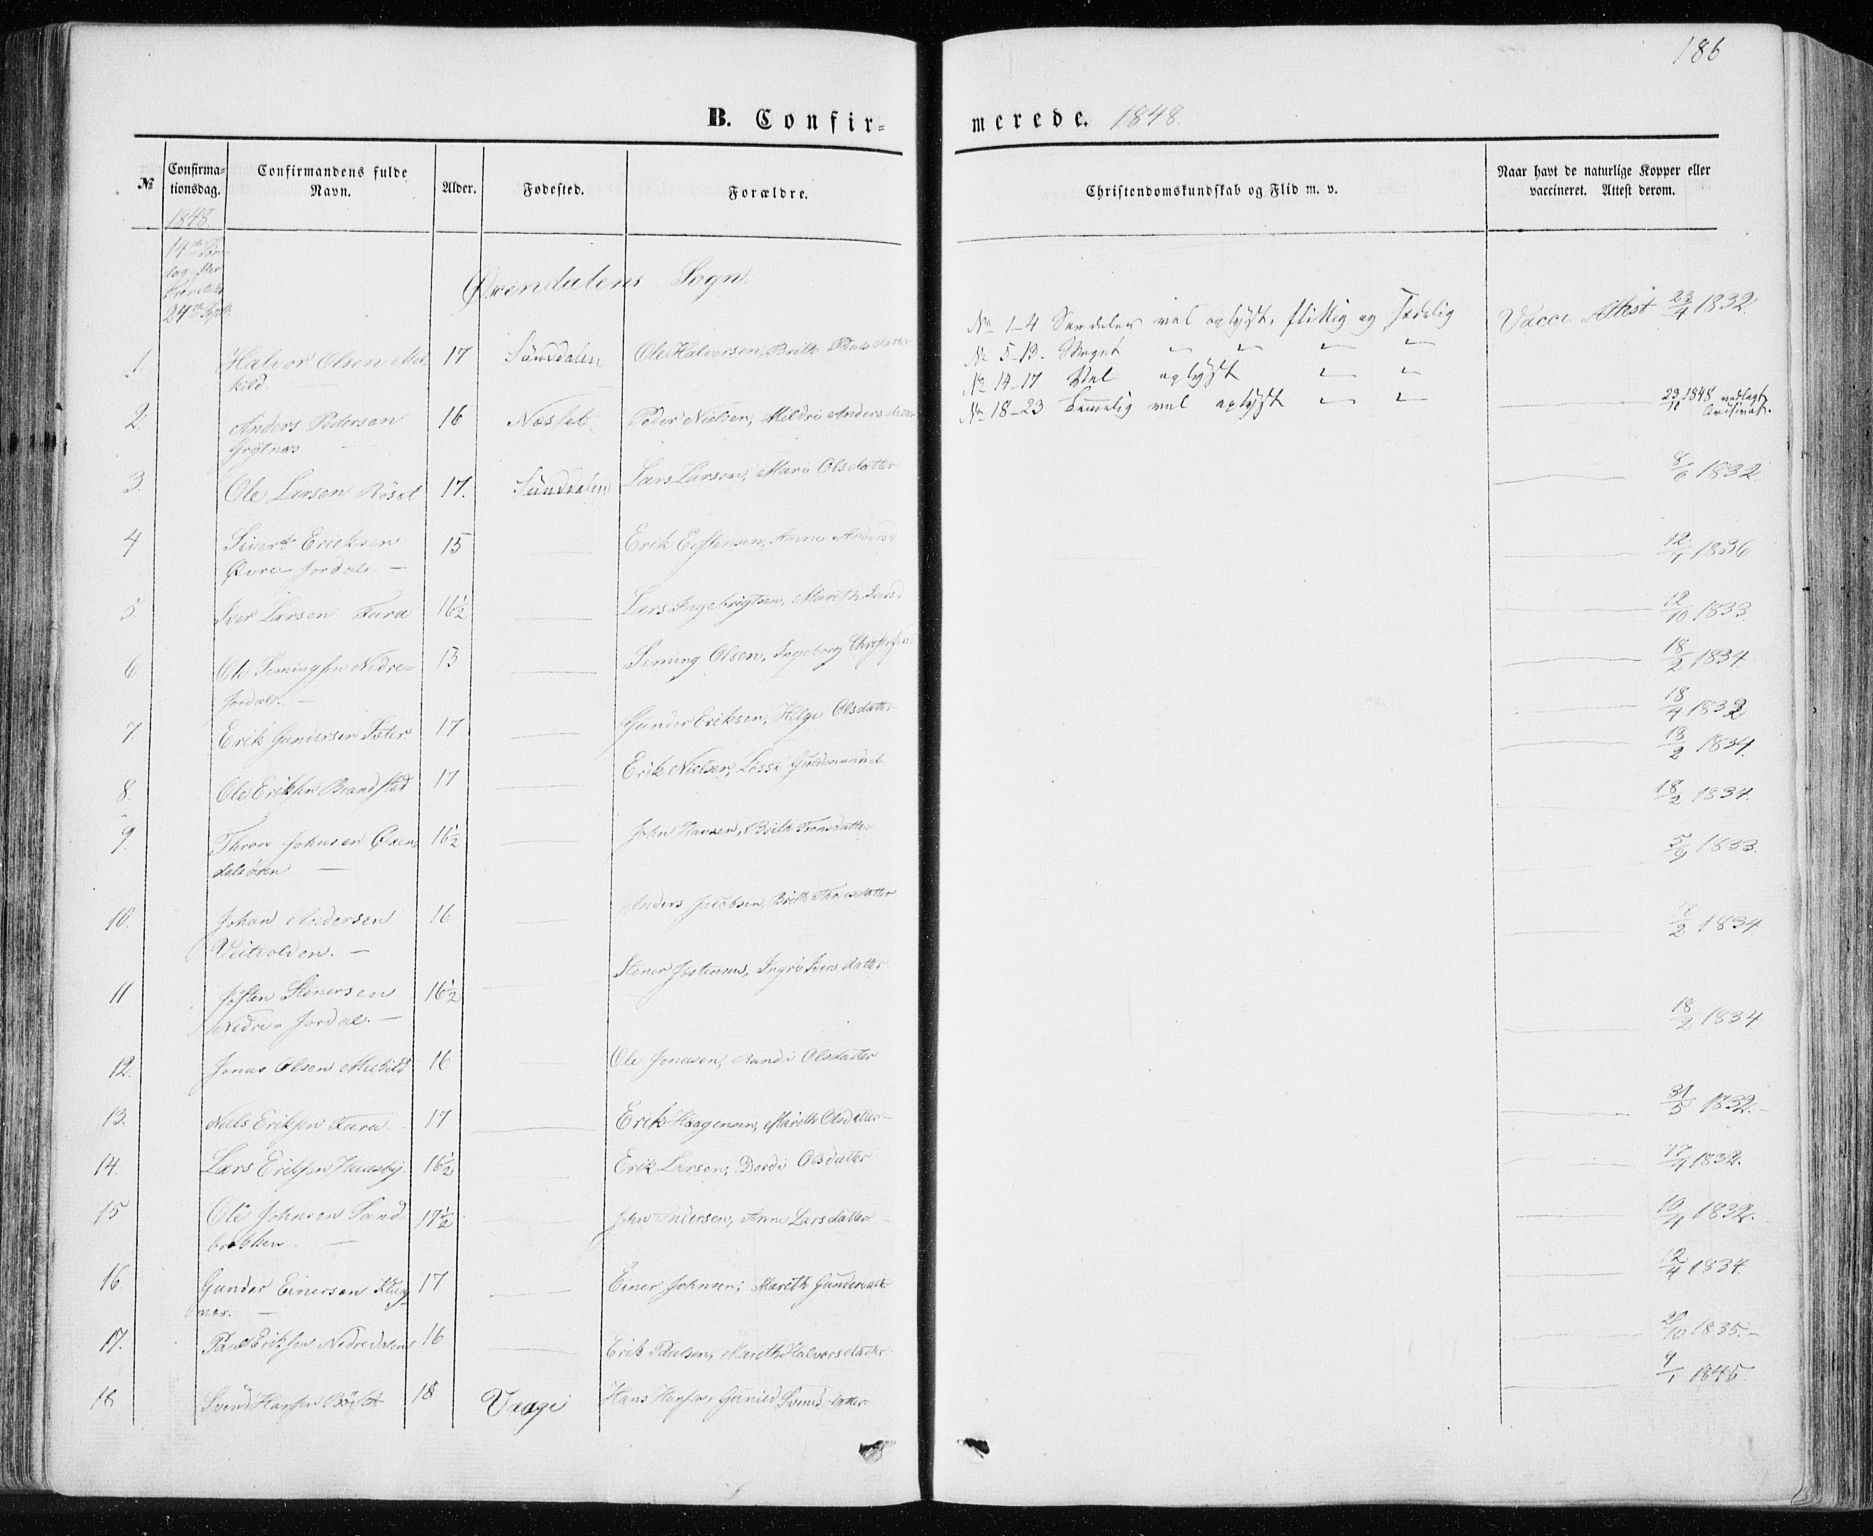 186
B. Confir=
merede. 1848.
№
Confirma=
tionsdag.
Confirmandens fulde
Navn.
Alder.
Fødested.
Forældre.
Christendomskundskab og Flid m. v.
Naar havt de naturlige Kopper eller
vaccineret. Attest derom.
1848
14de Søn
dag efter
24de Sept.
Øxendalens Sogn.
No 1–4 Særdeles vel oplyst, flittig og sædelig
No 5–13. Meget „ „ „ „
No 14–17 Vel oplyst „ „
No 18–23 Temmelig vel oplyst „ „
1 Halvor Olsen Mæ
kild. — 17 Sunddalen Ole Halvorsen, Brith Paulsdatter Vacc. Attest 23/4 1832.
2. Anders Pedersen
Grytnæs — 16 Nesset Peder Nielsen, Mildri Andersdatter 23/10 1848 vedlagt
3. Ole Larsen Røset 17. Sunddalen Lars Larsen, Mari Olsdatter 8/6 1832
4 Sivert Eriksen
Øvre-Jordal. — 15 Erik Eistensen, Anne Andersd 12/1 1836
5 Iver Larsen Fura 16½ Lars Ingebrigtsen, Marith Iversd 12/10 1833.
6 Ole Semingsen Nedre-
Jordal. — 15 Seming Olsen, Ingeborg 18/2 1834.
7 Erik Gundersen Sæter 17 Gunder Eriksen, Helge Olsdatter 18/4 1832
8. Ole Eriksen Brandstad 17 Erik Nielsen, 18/2 1834.
18/2 1834.
9. Thron Johnsen Øxen
dalsøren — 16½ John Hansen, Brith Tronsdatter 5/9 1833.
10. Johan Andersen
Veitvolden. — 16 Anders Jacobsen, Brith Thoresdatter 18/2 1834
11 Josten Stenersen
Nedre-Jordal. — 16½ Stener Jostensen, Ingri Iversdatter 18/2 1834
12. Jonas Olsen Mækild 16 Ole Jonasen, Randi Olsdatter
13. Niels Eriksen Fura. 17 Erik Haagensen, Marith Olsdatter— 31/5 1832.—
14. Lars Eriksen Huusby. 16½ Erik Larsen, Dordi Olsdatter 17/4 1832.
15 Ole Johnsen Sand
brekken. — 17½ John Andersen, Anne Larsdatter 10/4 1832.
16. Gunder Einersen Flug
nær. — 17 Einer Johnsen, Marith Gundersdatt 12/4 1834.
17. Paul Eriksen Nedredalens 16 Erik Paulsen, Marith Halvorsdatter 20/10 1835.—
18 Svend Hansen 18 Vaage Hans Hansen, Gunild Svendsdatter 9/1 1845.